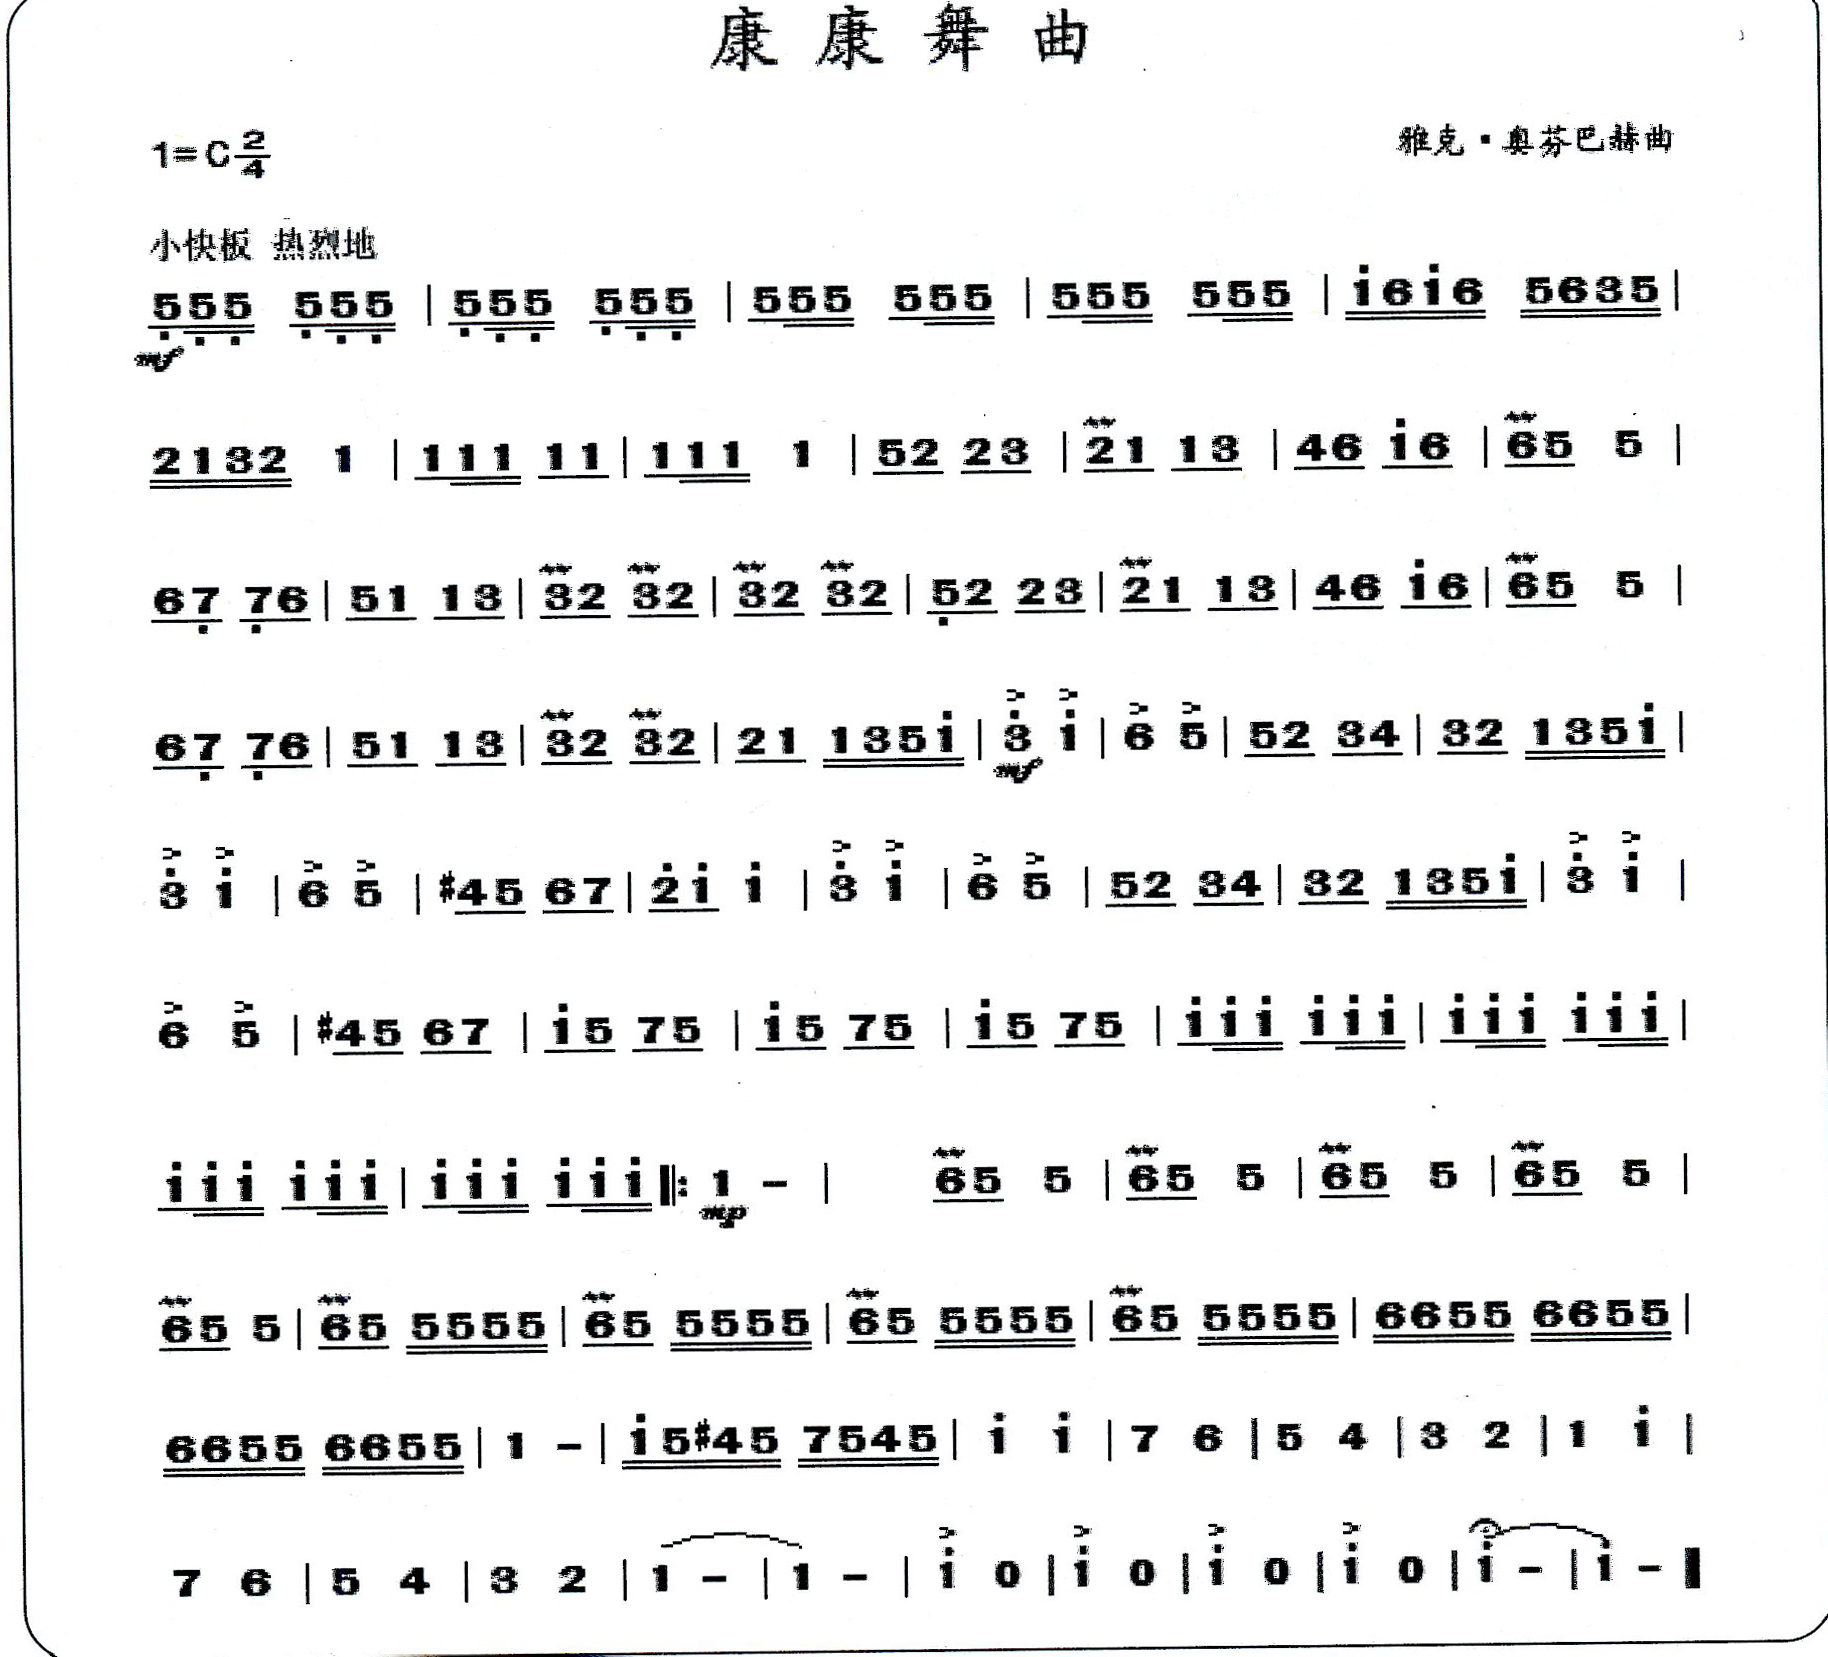 康康舞曲
1=C 2/4
雅克·奥芬巴赫曲
小快板 热烈地
5̣5̣5̣ 5̣5̣5̣ | 5̣5̣5̣ 5̣5̣5̣ | 555 555 | 555 555 | i6i6 5635 |
mf
2132 1 | 111 11 | 111 1 | 52 23 | 21 13 | 46 i6 | 65 5 |
67̣ 7̣6 | 51 13 | 32 32 | 32 32 | 5̣2 23 | 21 13 | 46 i6 | 65 5 |
67̣ 7̣6 | 51 13 | 32 32 | 21 135i | 3̇ i | 6 5 | 52 34 | 32 135i |
mf
3̇ i | 6 5 | #45 67 | 2̇i i | 3̇ i | 6 5 | 52 34 | 32 135i | 3̇ i |
6 5 | #45 67 | i5 75 | i5 75 | i5 75 | iii iii | iii iii |
iii iii | iii iii ‖: 1 – | 65 5 | 65 5 | 65 5 | 65 5 |
mp
65 5 | 65 5555 | 65 5555 | 65 5555 | 65 5555 | 6655 6655 |
6655 6655 | 1 – | i5#45 7545 | i i | 7 6 | 5 4 | 3 2 | 1 i |
7 6 | 5 4 | 3 2 | 1 – | 1 – | i 0 | i 0 | i 0 | i 0 | i – | i –